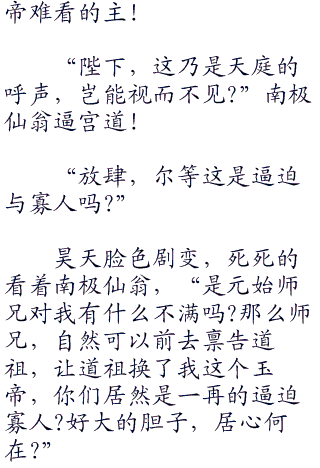 帝难看的主！
“陛下，这乃是天庭的
呼声，岂能视而不见？”南极
仙翁逼宫道！
“放肆，尔等这是逼迫
与寡人吗？”
昊天脸色剧变，死死的
看着南极仙翁，“是元始师
兄对我有什么不满吗？那么师
兄，自然可以前去禀告道
祖，让道祖换了我这个玉
帝，你们居然是一再的逼迫
寡人？好大的胆子，居心何
在？”